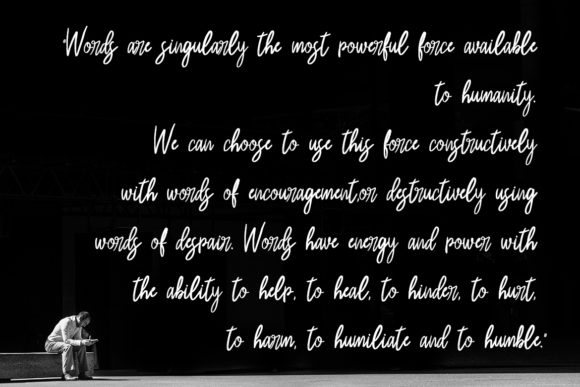 "Words are singularly the most powerful force available
to humanity.
We can choose to use this force constructively
with words of encouragement,or destructively using
words of despair. Words have energy and power with
the ability to help, to heal, to hinder, to hurt,
to harm, to humiliate and to humble."